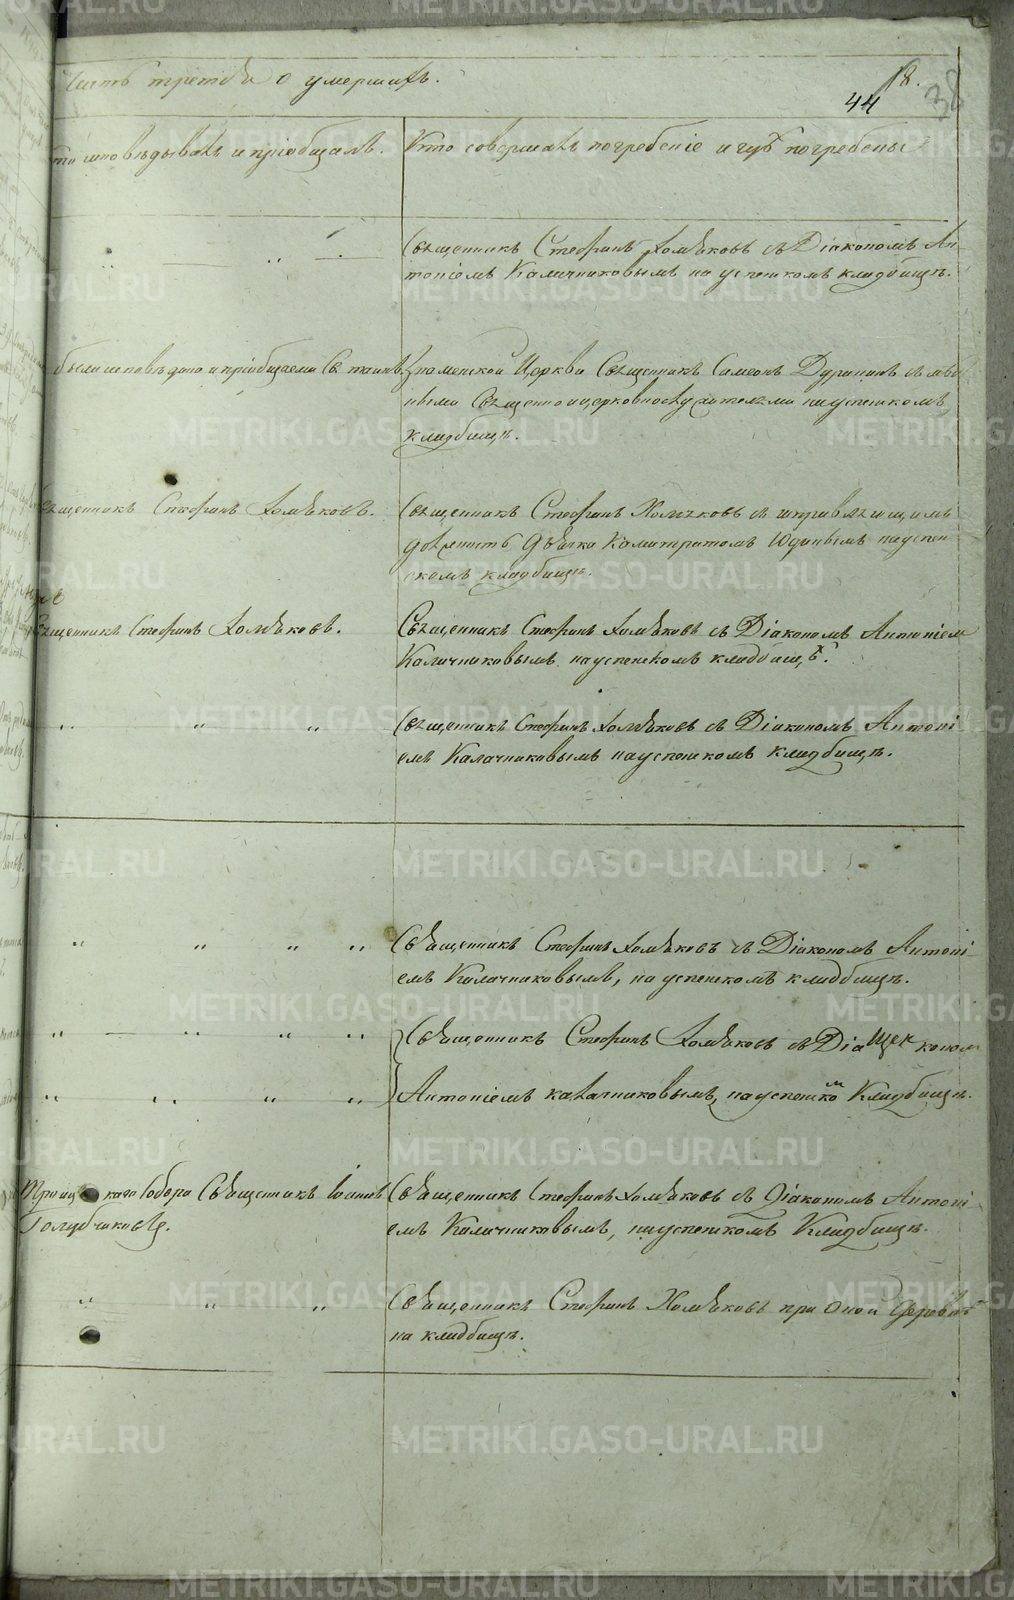 Часть третья о умершихъ.
18.
44
38
Кто исповѣдывалъ и пріобщалъ.
Кто совершалъ погребеніе и гдѣ погребены
Священникъ Стефанъ Хомяковъ съ Діакономъ Ан-
тоніемъ Калачниковымъ на успенскомъ кладбищѣ.
были исповѣданы и пріобщаемы Св. таинъ
Знаменской Церкви Священникъ Симеонъ
священноцерковнослужителями на успенскомъ
кладбищѣ.
Священникъ Стефанъ Хомяковъ.
Священникъ Стефанъ Хомяковъ съ исправляющимъ
должность Дьячка Калистратомъ Юдинымъ на успен-
скомъ кладбищѣ.
Священникъ Стефанъ Хомяковъ.
Священникъ Стефанъ Хомяковъ съ Діакономъ Антоніем
Калачниковымъ на успенскомъ кладбищѣ.
Священникъ Стефанъ Хомяковъ съ Діакономъ Антоні-
емъ Калачниковымъ на успенскомъ кладбищѣ.
Священникъ Стефанъ Хомяковъ съ Діакономъ Антоні-
емъ Калачниковымъ, на успенскомъ кладбищѣ.
Священникъ Стефанъ Хомяковъ съ Діакономъ
Антоніемъ Калачниковымъ, на успенском Кладбищѣ.
Троицкаго Собора Священникъ Іоаннъ
Голубчиковъ.
Священникъ Стефанъ Хомяковъ съ Діакономъ Антоні-
емъ Калачниковымъ, на успенскомъ Кладбищѣ.
Священникъ Стефанъ Хомяковъ при оной Церкви
на кладбищѣ.
METRIKI.GASO-URAL.RU